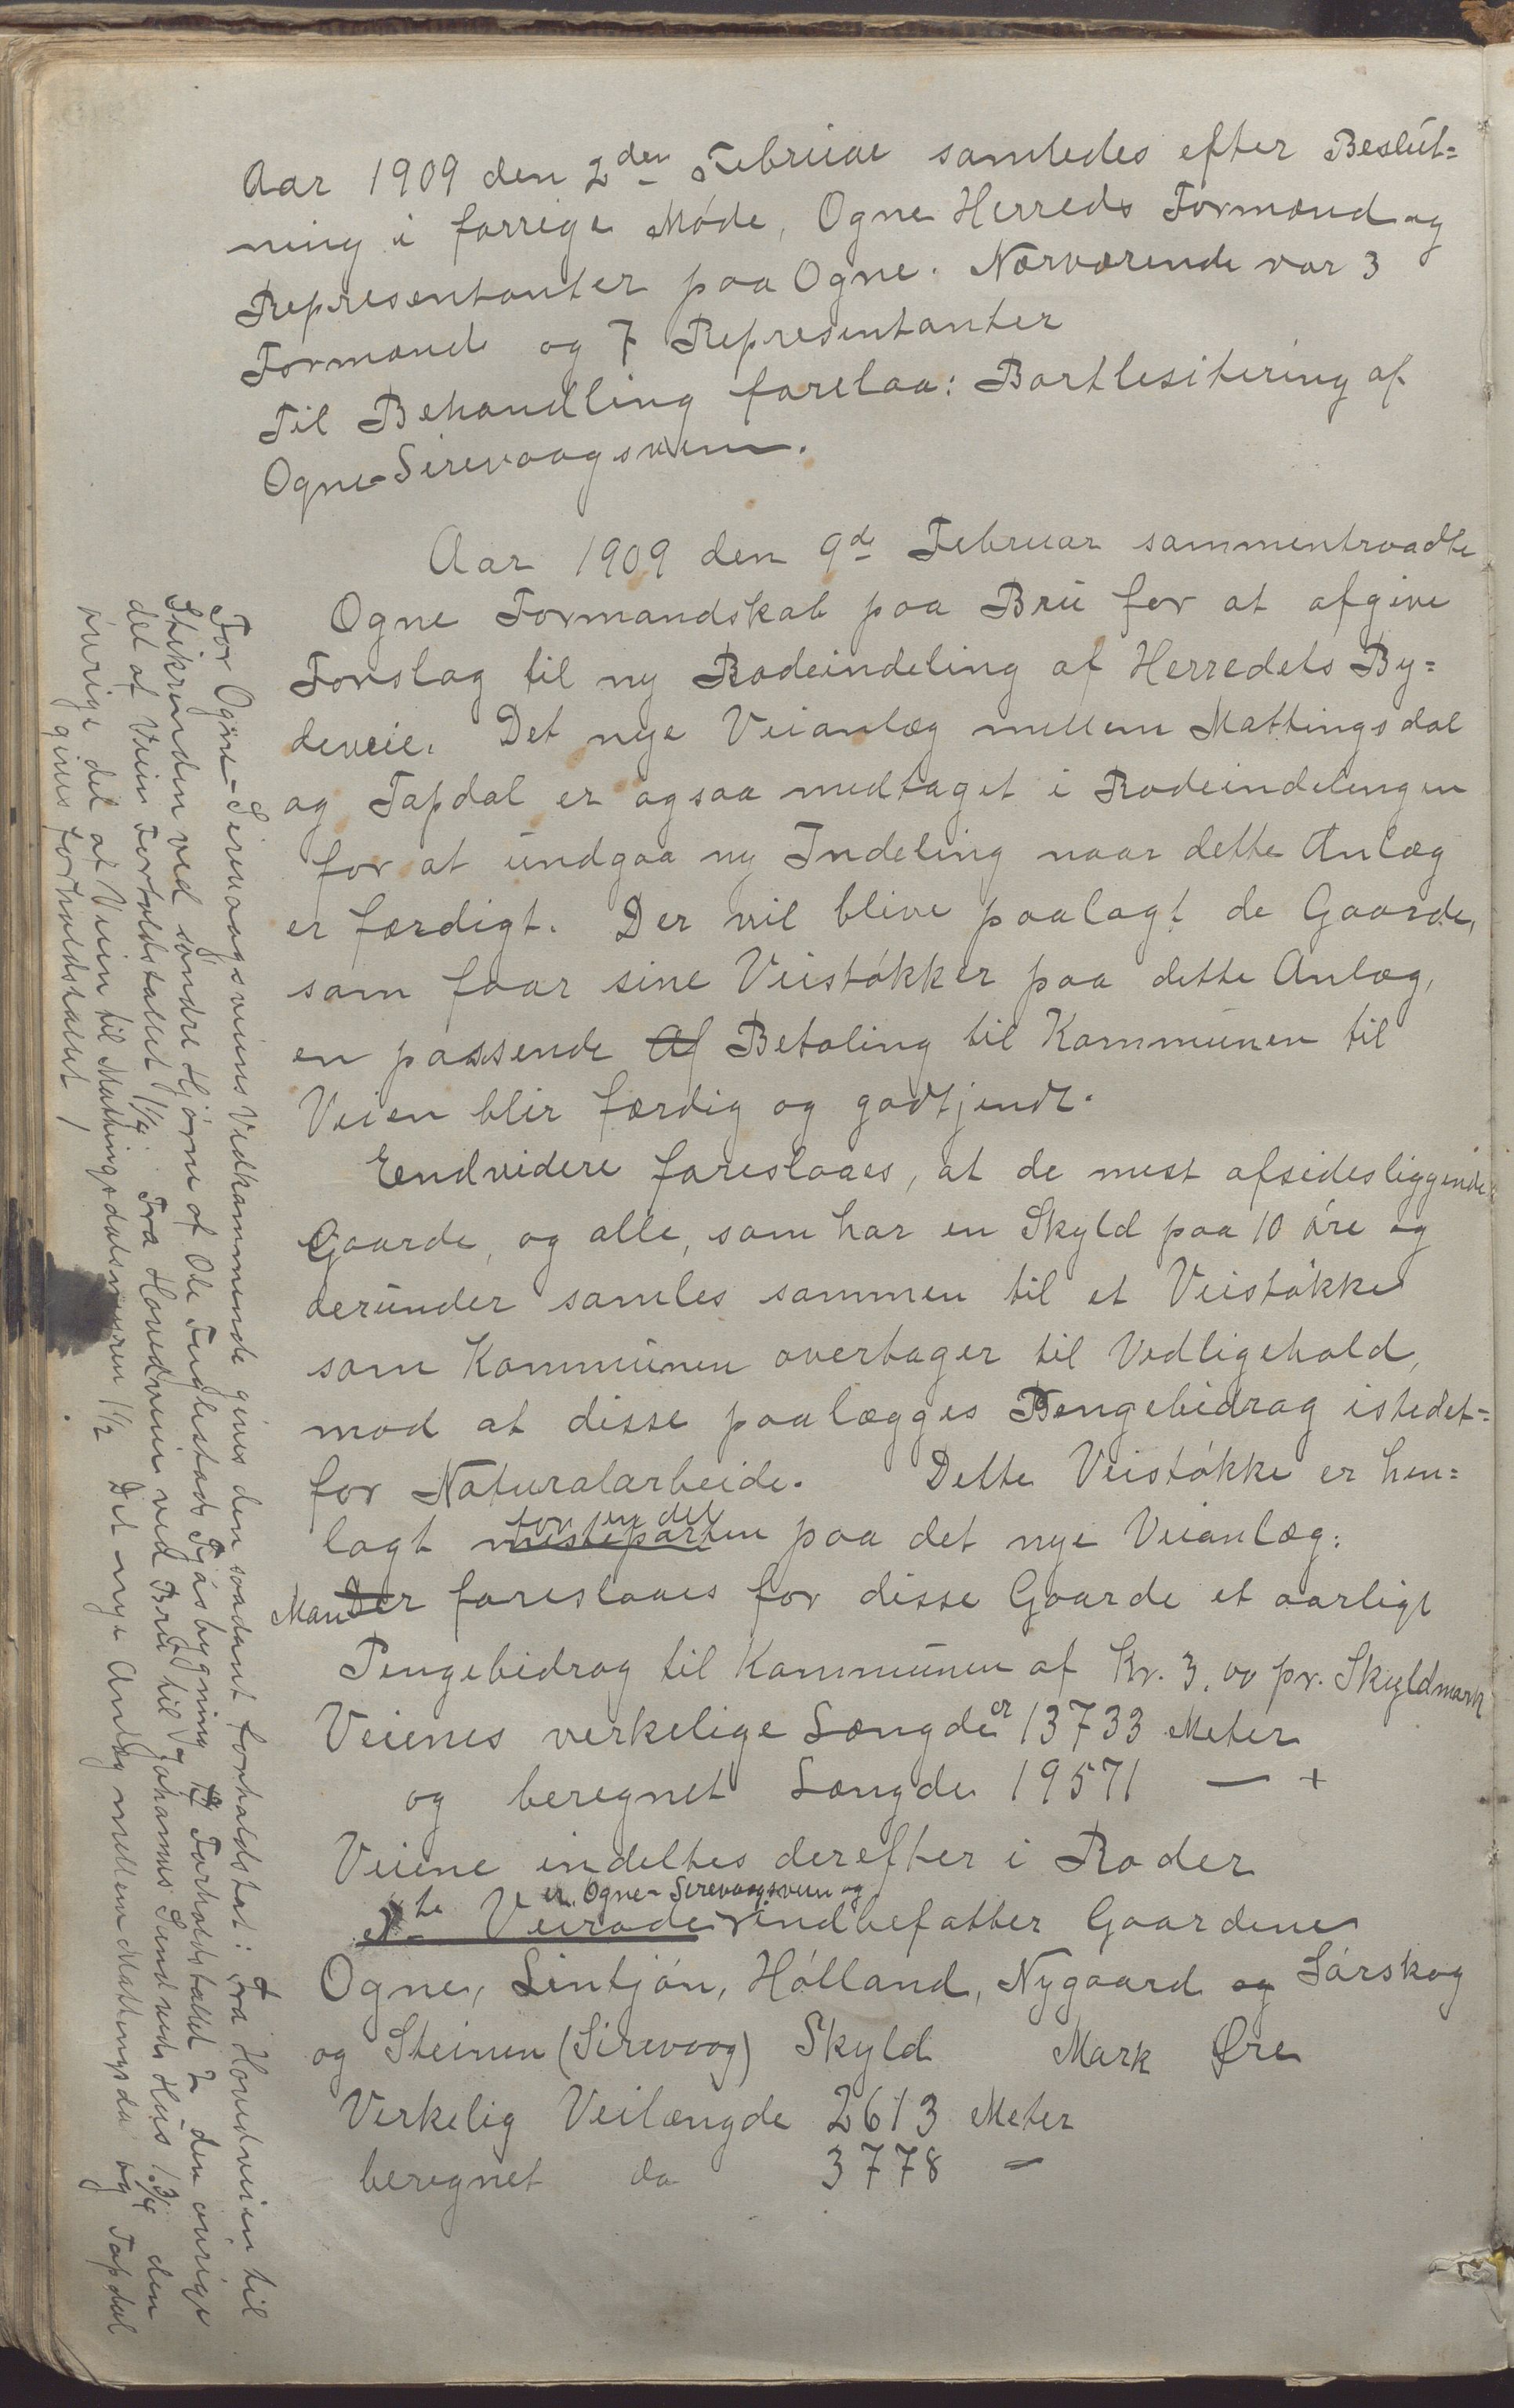 Aar 1909 den 2den Februar samledes efter Beslut=
ning i forrige Møde, Ogne Herreds Formænd og
Representanter paa Ogne. Nærværende var 3
Formænd og 7 Representanter
Til Behandling forelaa: Bortlisitering af
Ogne-Sirevaagsveien.
Aar 1909 den 9de Februar sammentraadte
Ogne Formandskab paa Bru for at afgive
Forslag til ny Rodeindeling af Herredets By=
deveie. Det nye Veianlæg mellem Mattingsdal
og Tapdal er ogsaa medtaget i Rodeindelingen
for at undgaa ny Indeling naar dette Anlæg
er færdigt. Der vil blive paalagt de Gaarde,
som faar sine Veistøkker paa dette Anlæg,
en passende Af Betaling til Kommunen til
Veien blir færdig og godkjendt.
Endvidere foreslaaes, at de mest afsidesliggende
Gaarde, og alle, som har en Skyld paa 10 øre og
derunder samles sammen til et Veistøkke
som Kommunen overtager til Vedligehold,
mod at disse paalægges Pengebidrag istedet=
for Naturalarbeide. Dette Veistøkke er hen=
for en del
lagt mesteparten paa det nye Veianlæg.
Man Der foreslaaes for disse Gaarde et aarligt
Pengebidrag til Kommunen af Kr. 3,00 pr. Skyldmark
Veienes verkelige Længde er 13733 Meter
og beregnet Længde 19571 — +
Veiene indeltes derefter i Roder
er Ogne-Sirevaagsveien og
1te Veirode indbefatter Gaardene
Ogne, Lintjøn, Hølland, Nygaard og Sårskog
og Steinen (Sirevaag) Skyld Mark Øre
Verkelig Veilængde 2613 Meter
beregnet do 3778 —
For Ogne-Sirevaagsveiens Vedkommende gives den saadant forholdstal: Fra Hovedveien til
Stikrenden ved søndre Hjørne af Ole Fuglestads Fjøsbygning Forholdstallet 2 den øvrige
del af Veien Forholdstallet 1 1/4. Fra Hovedveien ved Bru til Johannes Sendveds Hus 1 3/4 den
øvrige del af Veien til Mattingsdalsveien 1 1/2 Det nye Anlæg mellem Mattingsdal og Tapdal
gives forholdstallet 1